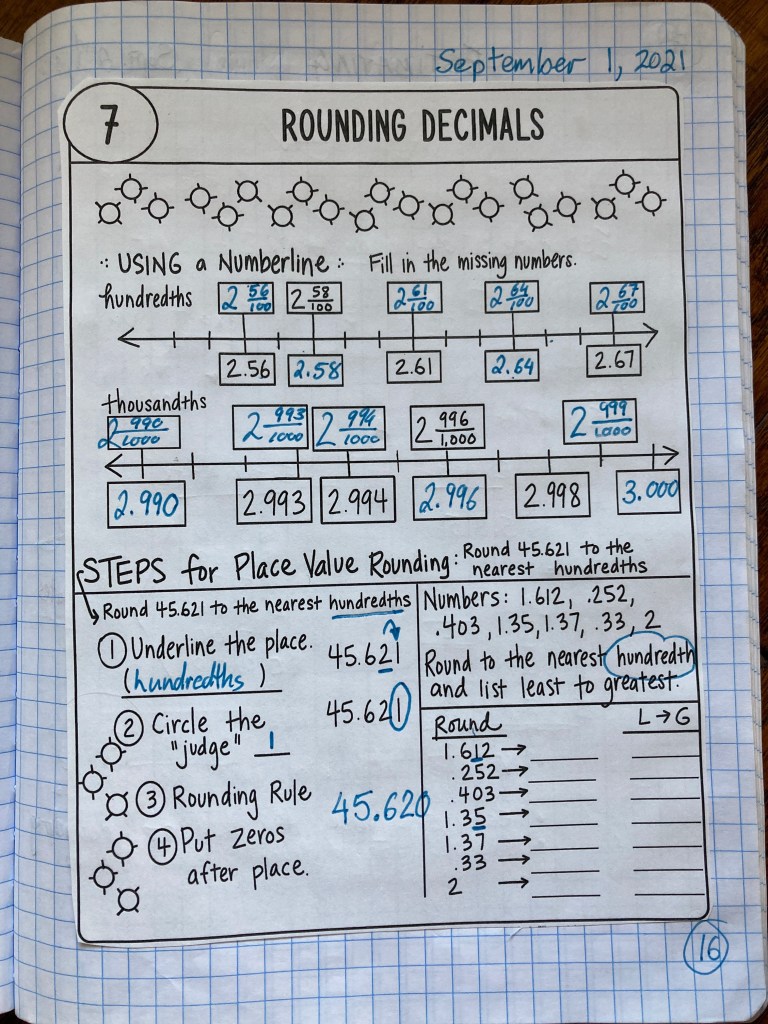 September 1, 2021
7
ROUNDING DECIMALS
∴ USING a Numberline ∴ Fill in the missing numbers.
hundredths
2 56/100 2 58/100 2 61/100 2 64/100 2 67/100
2.56 2.58 2.61 2.64 2.67
thousandths
2 990/1000 2 993/1000 2 994/1000 2 996/1,000 2 999/1,000
2.990 2.993 2.994 2.996 2.998 3.000
STEPS for Place Value Rounding: Round 45.621 to the
nearest hundredths
Round 45.621 to the nearest hundredths
① Underline the place. 45.621
(hundredths)
② Circle the 45.621
"judge" 1
③ Rounding Rule 45.620
④ Put zeros
after place.
Numbers: 1.612, .252,
.403, 1.35, 1.37, .33, 2
Round to the nearest hundredth
and list least to greatest.
Round L → G
1.612 →
.252 →
.403 →
1.35 →
1.37 →
.33 →
2 →
16